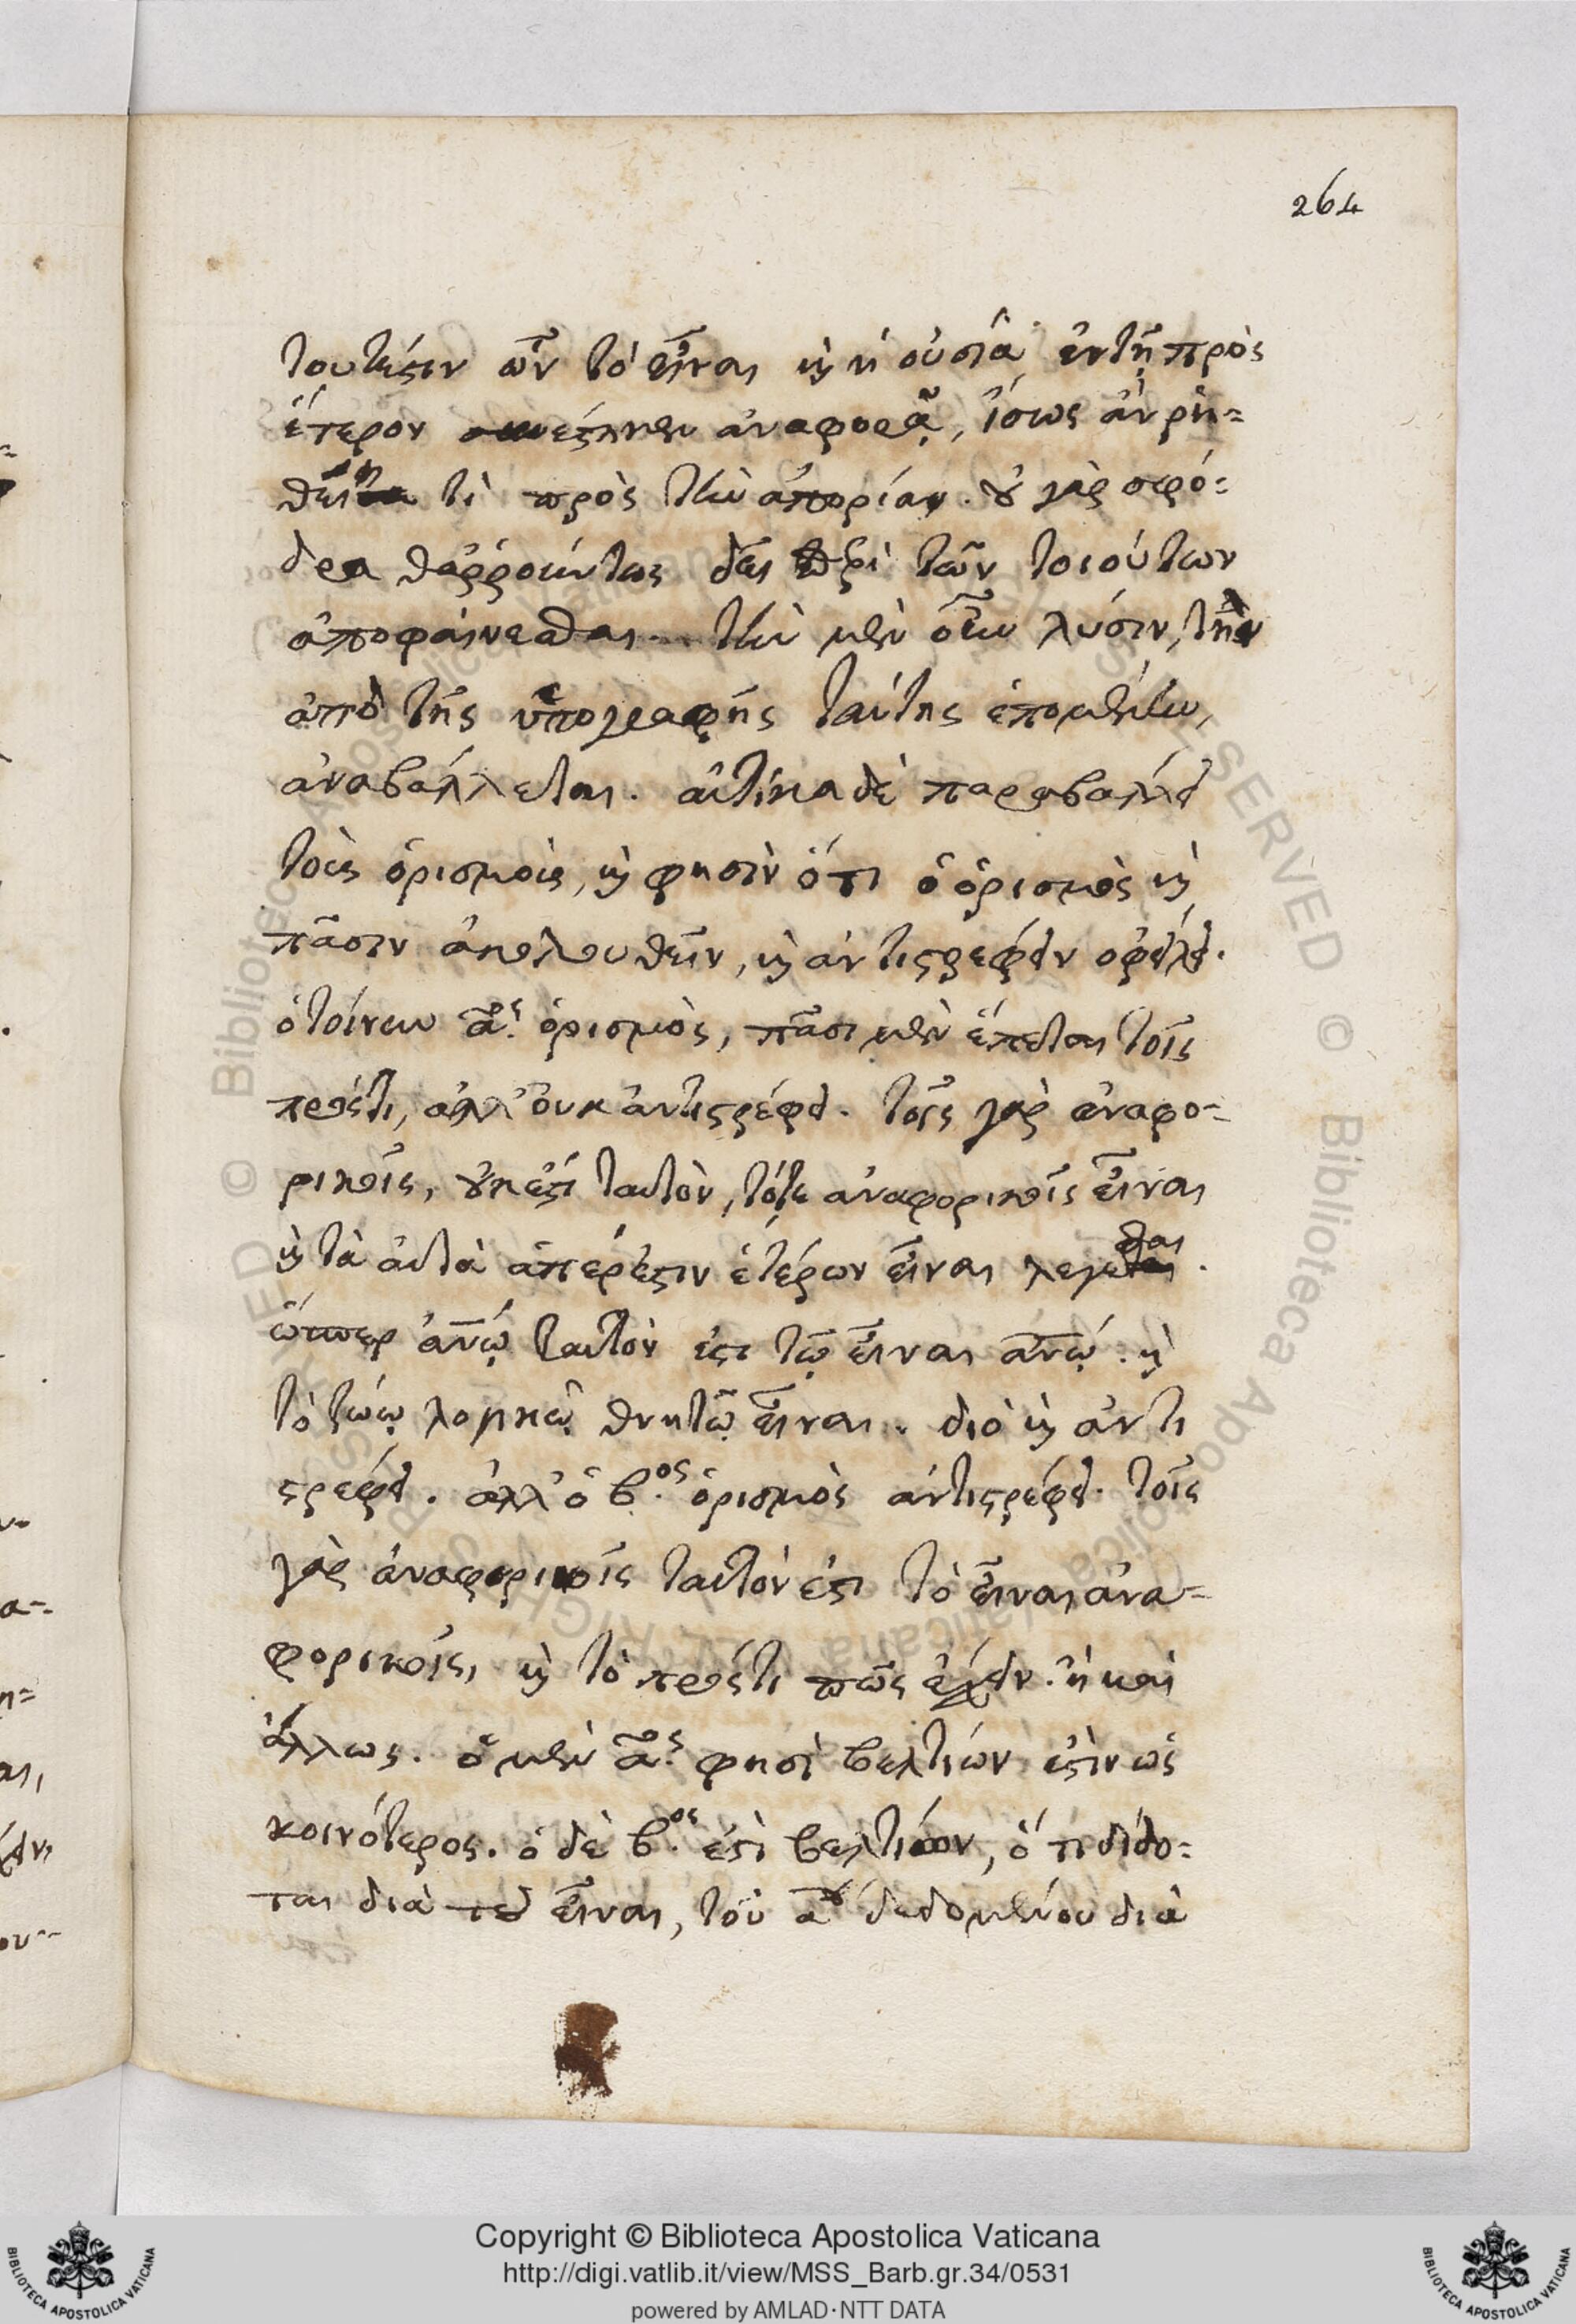 264
τουτέστιν ὧν τὸ εἶναι καὶ ἡ οὐσία ἐν τῇ πρὸς
ἕτερον ἀναφορᾷ, ἴσως ἂν ῥη-
θείη τὶ πρὸς τὴν ἀπορίαν. οὐ γὰρ σφό-
δρα θαῤῥούντως δεῖ περὶ τῶν τοιούτων
ἀποφαίνεσθαι. τὴν μὲν οὖν λύσιν, τὴν
ἀπὸ τῆς ὑπογραφῆς ταύτης ἑπομένην,
ἀναβάλλεται. αὐτίκα δὲ παραβάλλει
τοὺς ὁρισμοὺς, καὶ φησὶν ὅτι ὁ ὁρισμὸς καὶ
πᾶσιν ἀκολουθεῖν, καὶ ἀντιστρέφειν ὀφείλει.
ὁ τοίνυν αος ὁρισμὸς, πᾶσι μὲν ἕπεται τοῖς
πρόςτι, ἀλλ' οὐκ ἀντιστρέφει. τοῖς γὰρ ἀναφο-
ρικοῖς, οὐκ ἔστι ταυτὸν, τότε ἀναφορικοῖς εἶναι
καὶ τὰ αὐτὰ ἅπερ ἐστιν ἑτέρων εἶναι λέγεσθαι.
ὥσπερ ἀνῳ ταυτὸν ἐστι τῷ εἶναι ἀνῳ. καὶ
τὸ ζώῳ λογικῷ θνητῷ εἶναι. διὸ καὶ ἀντι
στρέφει. ἀλλ' ὁ βος ὁρισμὸς ἀντιστρέφει. τοῖς
γὰρ ἀναφορικοῖς ταυτὸν ἐστι τὸ εἶναι ἀνα-
φορικοῖς, καὶ τὸ πρόςτι πῶς ἔχειν. ἢ καὶ
ἄλλως. ὁ μὲν αος φησὶ βελτίων ἐστὶν ὡς
κοινότερος. ὁ δὲ βος ἐστὶ βελτίων, ὅτι δίδο-
ται διὰ τοῦ εἶναι, τοῦ αου δεδομένου διὰ
Copyright © Biblioteca Apostolica Vaticana
http://digi.vatlib.it/view/MSS_Barb.gr.34/0531
powered by AMLAD·NTT DATA